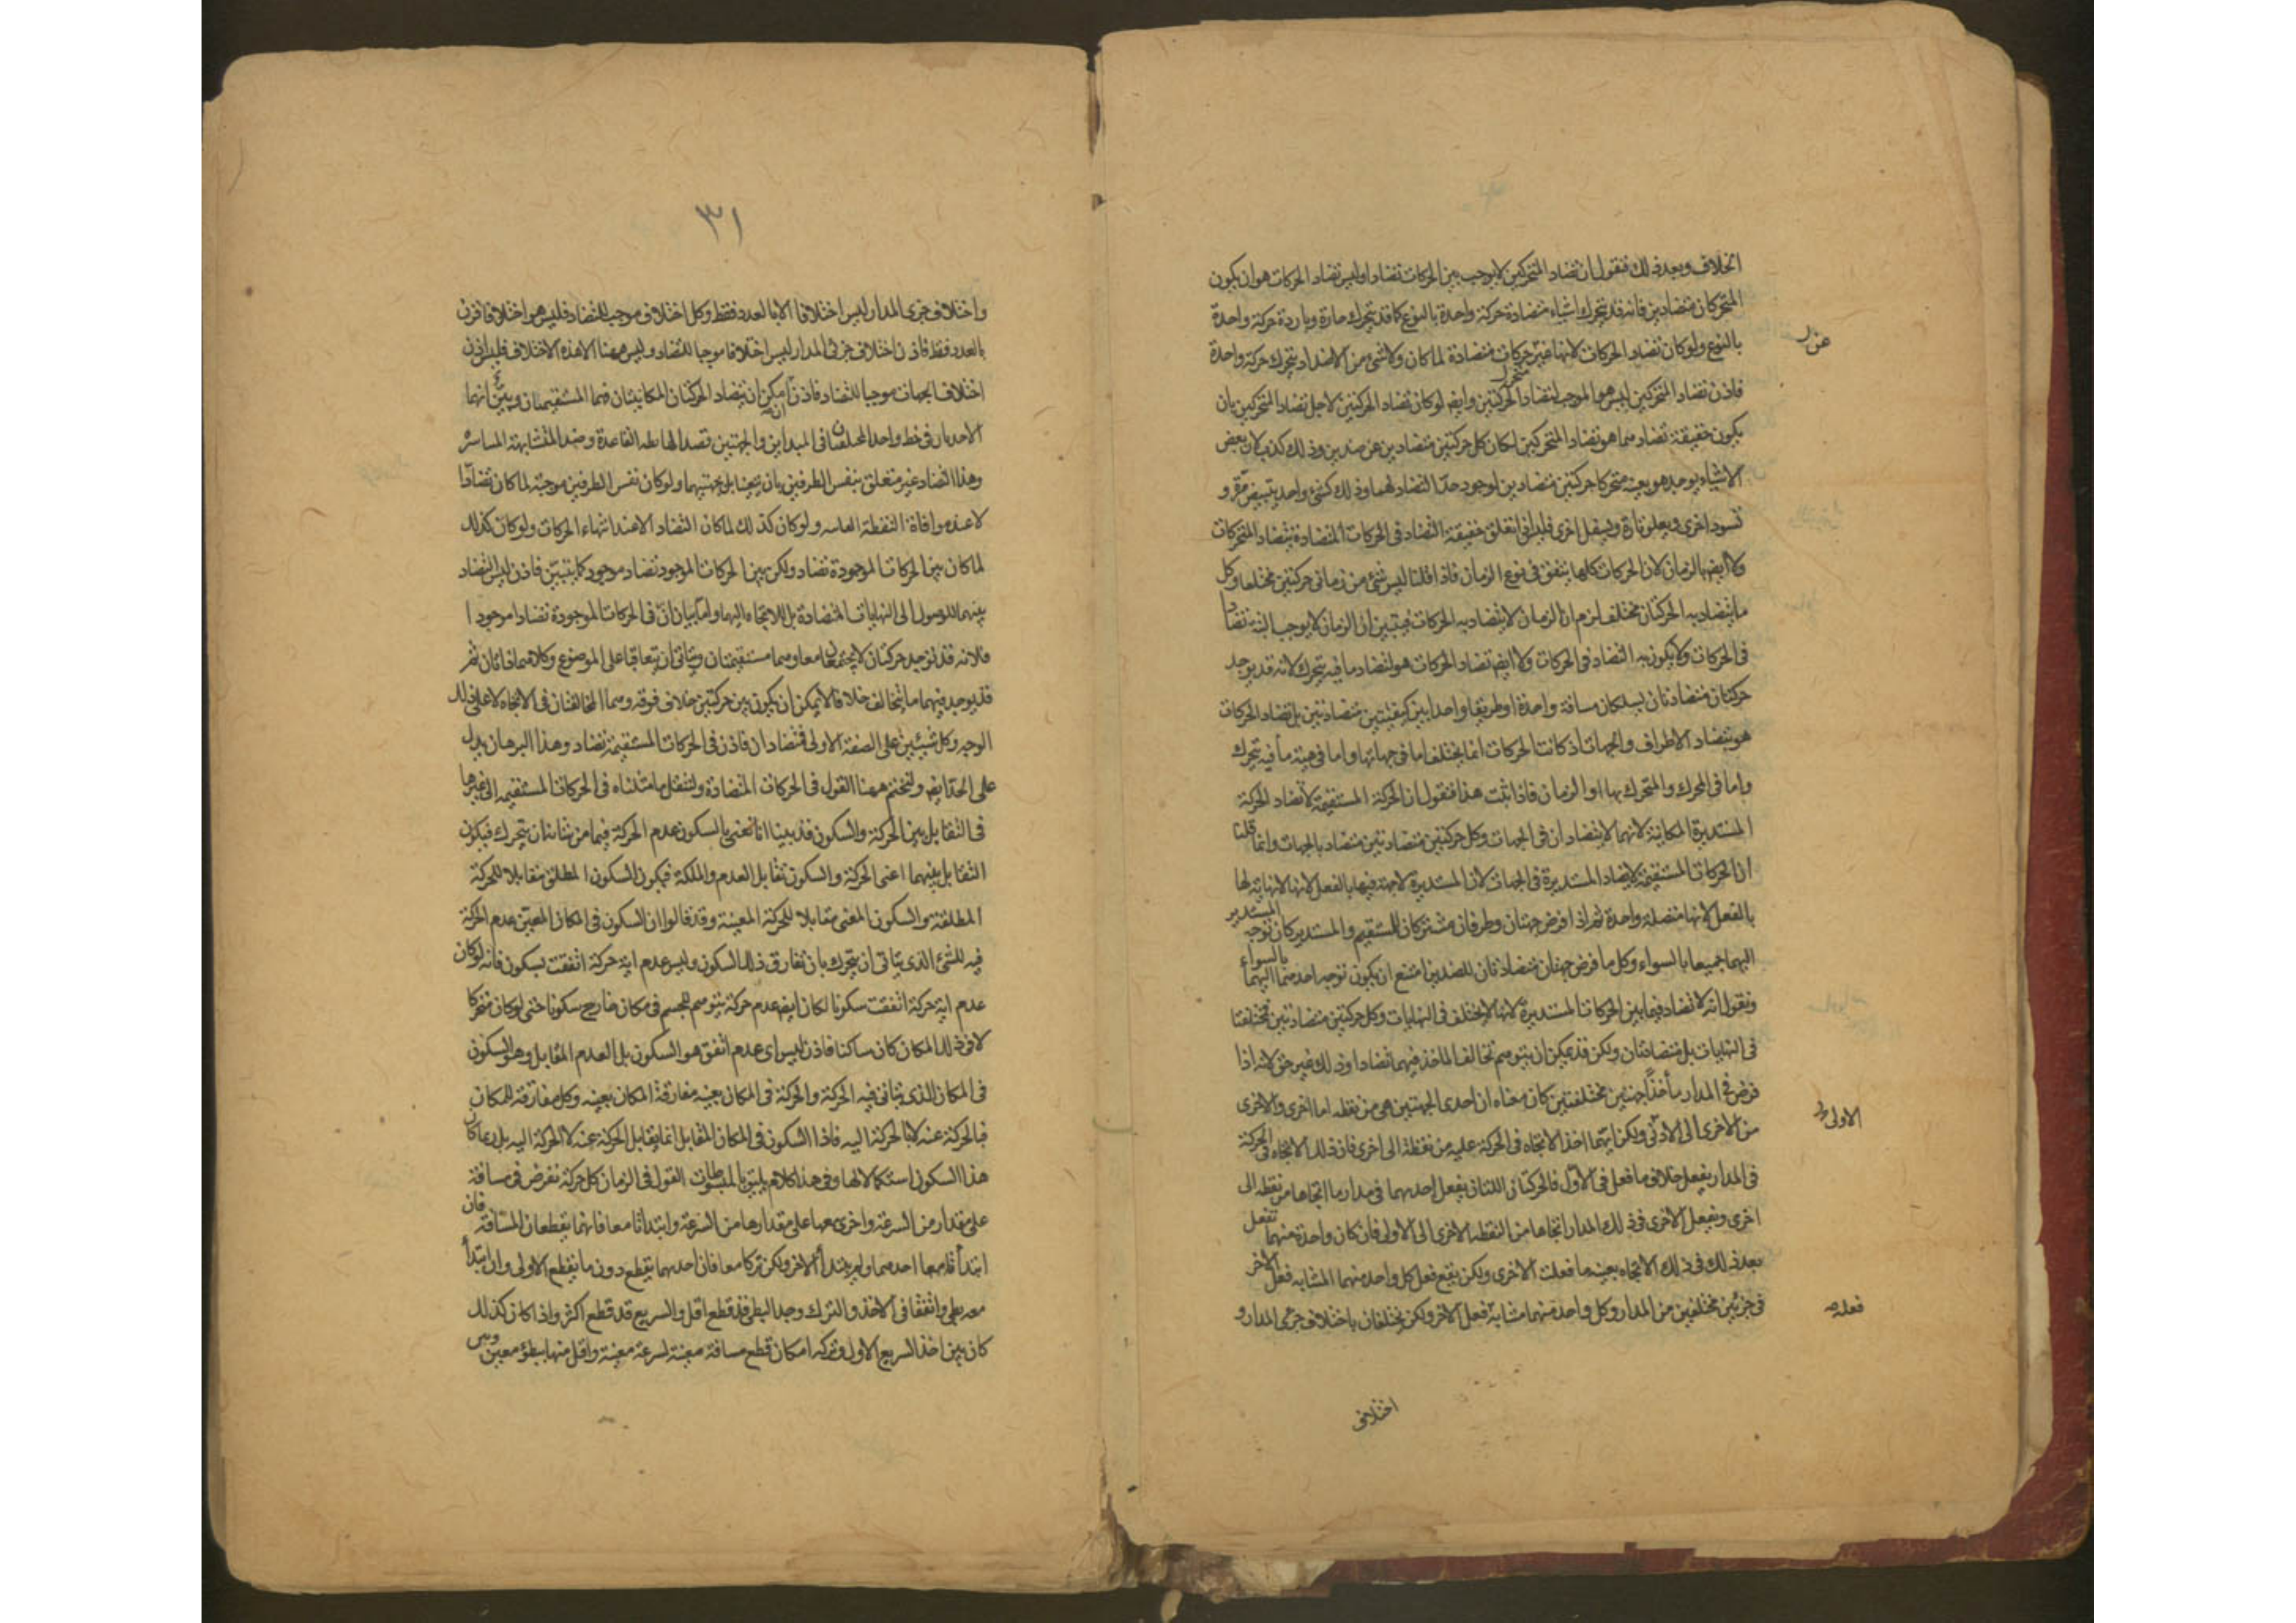 الخلاف وبعد ذلك فنقول ان تضاد المتحركين لا يوجب بين الحركات تضادا وليس تضاد الحركات هو ان يكون
المتحركان متضادين فانه قد يتحرك اشياء متضادة حركة واحدة بالنوع كما قد يتحرك حارة وباردة حركة واحدة
بالنوع ولو كان تضاد الحركات لانها غير حركات متضادة لما كان ولا شئ من الاضداد يتحرك حركة واحدة
فاذن تضاد المتحركين ليس هو الموجب لتضاد الحركتين وايضا لو كان تضاد الحركتين لاجل تضاد المتحركين بان
يكون حقيقة تضادهما هو تضاد المتحركين لكان كل حركتين متضادين عن ضدين وذلك كذب لان بعض
الاشياء يوجد هو بعينه متحركا حركتين متضادين لوجود حد التضاد لهما وذلك كشئ واحد يتبيض مرة و
تسود اخرى ويعلو تارة ويسفل اخرى فليس اذن تعلق حقيقة التضاد فى الحركات المتضادة بتضاد المتحركات
ولا ايضا بالزمان لان الحركات كلها يتفق فى نوع الزمان فاذا قلنا ليس شئ من زمانى حركتين مختلفا وكل
ما يتضاد به الحركتان مختلف لزم ان الزمان لا يتضاد به الحركات فيتبين ان الزمان لا يوجب البتة تضادا
فى الحركات ولا يكون به التضاد فى الحركات ولا ايضا تضاد الحركات هو لتضاد ما فيه يتحرك لانه قد يوجد
حركتان متضادتان يسلكان مسافة واحدة او طريقا واحدا بين كيفيتين متضادتين بل تضاد الحركات
هو بتضاد الاطراف والجهات اذ كانت الحركات انما يختلف اما فى جهاتها واما فى هيئة ما فيه يتحرك
واما فى المحرك والمتحرك بها او الزمان فاذا ثبت هذا فنقول ان الحركة المستقيمة لا تضاد الحركة
المستديرة المكانية لانهما لا يتضادان فى الجهات وكل حركتين متضادتين متضاد بالجهات وانما قلنا
ان الحركات المستقيمة لا يضاد المستديرة فى الجهات لان المستديرة لا جهة فيها بالفعل لانها لا نهاية لها
بالفعل لانها متصلة واحدة ثم اذا فرض جهتان وطرفان مشتركان للمستقيم والمستدير كان توجه المستدير
اليهما جميعا بالسواء وكل ما فرض جهتان متضادتان للضدين امتنع ان يكون توجه احدهما اليهما بالسواء
ونقول انه لا تضاد فيما بين الحركات المستديرة لانها لا يختلف فى النهايات وكل حركتين متضادتين مختلفتا
فى النهايات بل متضادتان ولكن قد يمكن ان يتوهم تخالف الماخذ فيهما تضادا وذلك غير حق لانه اذا
فرض فى المدار مأخذا جهتين مختلفتين كان معناه ان احدى الجهتين هى من نقطة اما الى اخرى والاخرى
من الاخرى الى الاولى ولكن ايتهما اخذ الاتجاه فى الحركة عليه من نقطة الى اخرى فان ذلك الاتجاه فى الحركة
فى المدار يفعل خلاف ما فعل فى الاول فالحركتان اللتان يفعل احدهما فى مدار ما اتجاها من نقطه الى
اخرى ويفعل الاخرى فى ذلك المدار اتجاها من النقطه الاخرى الى الاولى فان كان واحدة منهما تفعل
بعد ذلك فى ذلك الاتجاه بعينه ما فعلت الاخرى ولكن يقع فعل كل واحد منهما المشابه فعل الاخر
فى جزئين مختلفين من المدار وكل واحد منهما مشابه فعل الاخر ولكن يختلفان باختلاف جزئى المدار و
الاولى
فعله
اختلاف
٣١
واختلاف جزئى المدار ليس اختلافا الا بالعدد فقط وكل اختلاف موجب للتضاد فليس هو اختلافا فى
بالعدد فقط فاذن اختلاف جزئى المدار ليس اختلافا موجبا للتضاد وليس ههنا الا هذه الاختلاف فليس اذن
اختلاف الجهات موجبا للتضاد فاذن ان امكن ان يتضاد الحركتان المكانيتان فهما المستقيمتان وبين انهما
الاخذتان فى خط واحد المختلفتان فى المبداين والجهتين
وهذا التضاد غير متعلق بنفس الطرفين بان يتعينا بل بجهتيهما ولو كان نفس الطرفين موجبة لما كان تضادا
لا عند موافاة النقطة ولو كان كذلك لما كان التضاد الا عند انتهاء الحركات ولو كان كذلك
لما كان بين الحركات الموجودة تضاد ولكن بين الحركات الموجود تضاد موجود كما يتبين فاذن ليس التضاد
بينهما للوصول الى النهايات المتضادة بل للاتجاه اليها واما بيان ان فى الحركات الموجودة تضادا موجودا
فلانه قد توجد حركتان لا يجتمعان معا وهما مستقيمتان ويتأتى ان يتعاقبا على الموضوع وكلاهما ذاتان ثم
قد يوجد فيهما ما يتخالف خلافا لا يمكن ان يكون بين حركتين خلاف فوقه وهما المخالفتان فى الاتجاه لا على ذلك
الوجه وكل شيئين على الصفة الاولى فمتضادان فاذن فى الحركات المستقيمة تضاد وهذا البرهان يدل
على الحد ايضا ولنختم ههنا القول فى الحركات المتضادة ولننقل ما مثلناه فى الحركات المستقيمه الى غيرها
فى التقابل بين الحركة والسكون قد بينا انا نعنى بالسكون عدم الحركة فيما من شانه ان يتحرك فيكون
التقابل بينهما اعنى الحركة والسكون تقابل العدم والملكة فيكون السكون المطلق مقابلا للحركة
المطلقة والسكون المعين مقابلا للحركة المعينة وقد قالوا ان السكون فى المكان المعين عدم الحركة
فيه للشئ الذى يتأتى ان يتحرك بان تفارق ذلك السكون وليس عدم اية حركة اتفقت بسكون فانه لو كان
عدم اية حركة اتفقت سكونا لكان ايضا عدم حركة يتوهم للجسم فى مكان خارج سكونا حتى لو كان متحركا
لا فى ذلك المكان كان ساكنا فاذن ليس اى عدم اتفق هو السكون بل العدم المقابل وهو السكون
فى المكان الذى يتأتى فيه الحركة والحركة فى المكان بعينه مفارقة المكان بعينه وكل مفارقة للمكان
فبالحركة عنه لا بالحركة اليه فاذا السكون فى المكان المقابل انما يقابل الحركة عنه لا الحركة اليه بل ربما كان
هذا السكون استكمالا لها وفى هذا كلام يليق بالمبسوطات القول فى الزمان كل حركة تفرض فى مسافة
على مقدار من السرعة واخرى معها على مقدارها من السرعة وابتدأتا معا فانهما يقطعان المسافة فان
ابتدأتا معا احدهما ولم يبتدأ الاخر ولكن تركا معا فان احدهما يقطع دون ما يقطع الاولى وان ابتدأ
معه بطئ واتفقا فى الاخذ والترك وجد البطئ قد قطع اقل والسريع قد قطع اكثر واذا كان كذلك
كان بين اخذ السريع الاول وتركه امكان قطع مسافة معينة لسرعة معينة واقل منها ببطؤ معين وبين